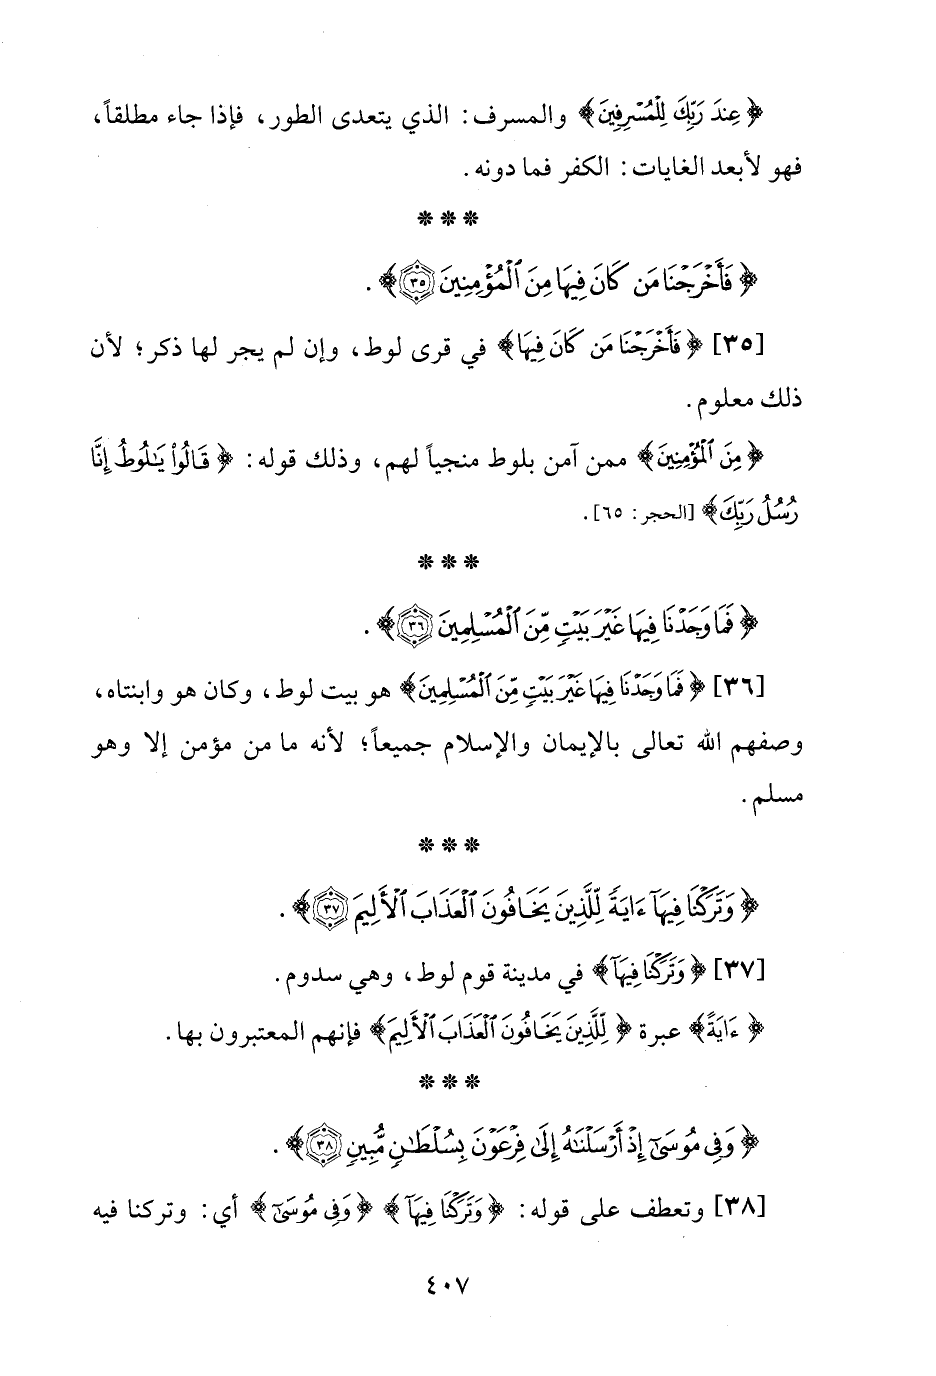 ﴿عِندَ رَبِّكَ لِلْمُسْرِفِينَ﴾ والمسرف: الذي يتعدى الطور، فإذا جاء مطلقاً،
فهو لأبعد الغايات: الكفر فما دونه.
* * *
﴿فَأَخْرَجْنَا مَن كَانَ فِيهَا مِنَ ٱلْمُؤْمِنِينَ ٣٥﴾.
[٣٥] ﴿فَأَخْرَجْنَا مَن كَانَ فِيهَا﴾ في قرى لوط، وإن لم يجر لها ذكر؛ لأن
ذلك معلوم.
﴿مِنَ ٱلْمُؤْمِنِينَ﴾ ممن آمن بلوط منجياً لهم، وذلك قوله: ﴿قَالُوا۟ يَـٰلُوطُ إِنَّا
رُسُلُ رَبِّكَ﴾ [الحجر: ٦٥].
* * *
﴿فَمَا وَجَدْنَا فِيهَا غَيْرَ بَيْتٍ مِّنَ ٱلْمُسْلِمِينَ ٣٦﴾.
[٣٦] ﴿فَمَا وَجَدْنَا فِيهَا غَيْرَ بَيْتٍ مِّنَ ٱلْمُسْلِمِينَ﴾ هو بيت لوط، وكان هو وابنتاه،
وصفهم الله تعالى بالإيمان والإسلام جميعاً؛ لأنه ما من مؤمن إلا وهو
مسلم.
* * *
﴿وَتَرَكْنَا فِيهَآ ءَايَةً لِّلَّذِينَ يَخَافُونَ ٱلْعَذَابَ ٱلْأَلِيمَ ٣٧﴾.
[٣٧] ﴿وَتَرَكْنَا فِيهَآ﴾ في مدينة قوم لوط، وهي سدوم.
﴿ءَايَةً﴾ عبرة ﴿لِّلَّذِينَ يَخَافُونَ ٱلْعَذَابَ ٱلْأَلِيمَ﴾ فإنهم المعتبرون بها.
* * *
﴿وَفِى مُوسَىٰٓ إِذْ أَرْسَلْنَـٰهُ إِلَىٰ فِرْعَوْنَ بِسُلْطَـٰنٍ مُّبِينٍ ٣٨﴾.
[٣٨] وتعطف على قوله: ﴿وَتَرَكْنَا فِيهَآ﴾ ﴿وَفِى مُوسَىٰٓ﴾ أي: وتركنا فيه
٤٠٧